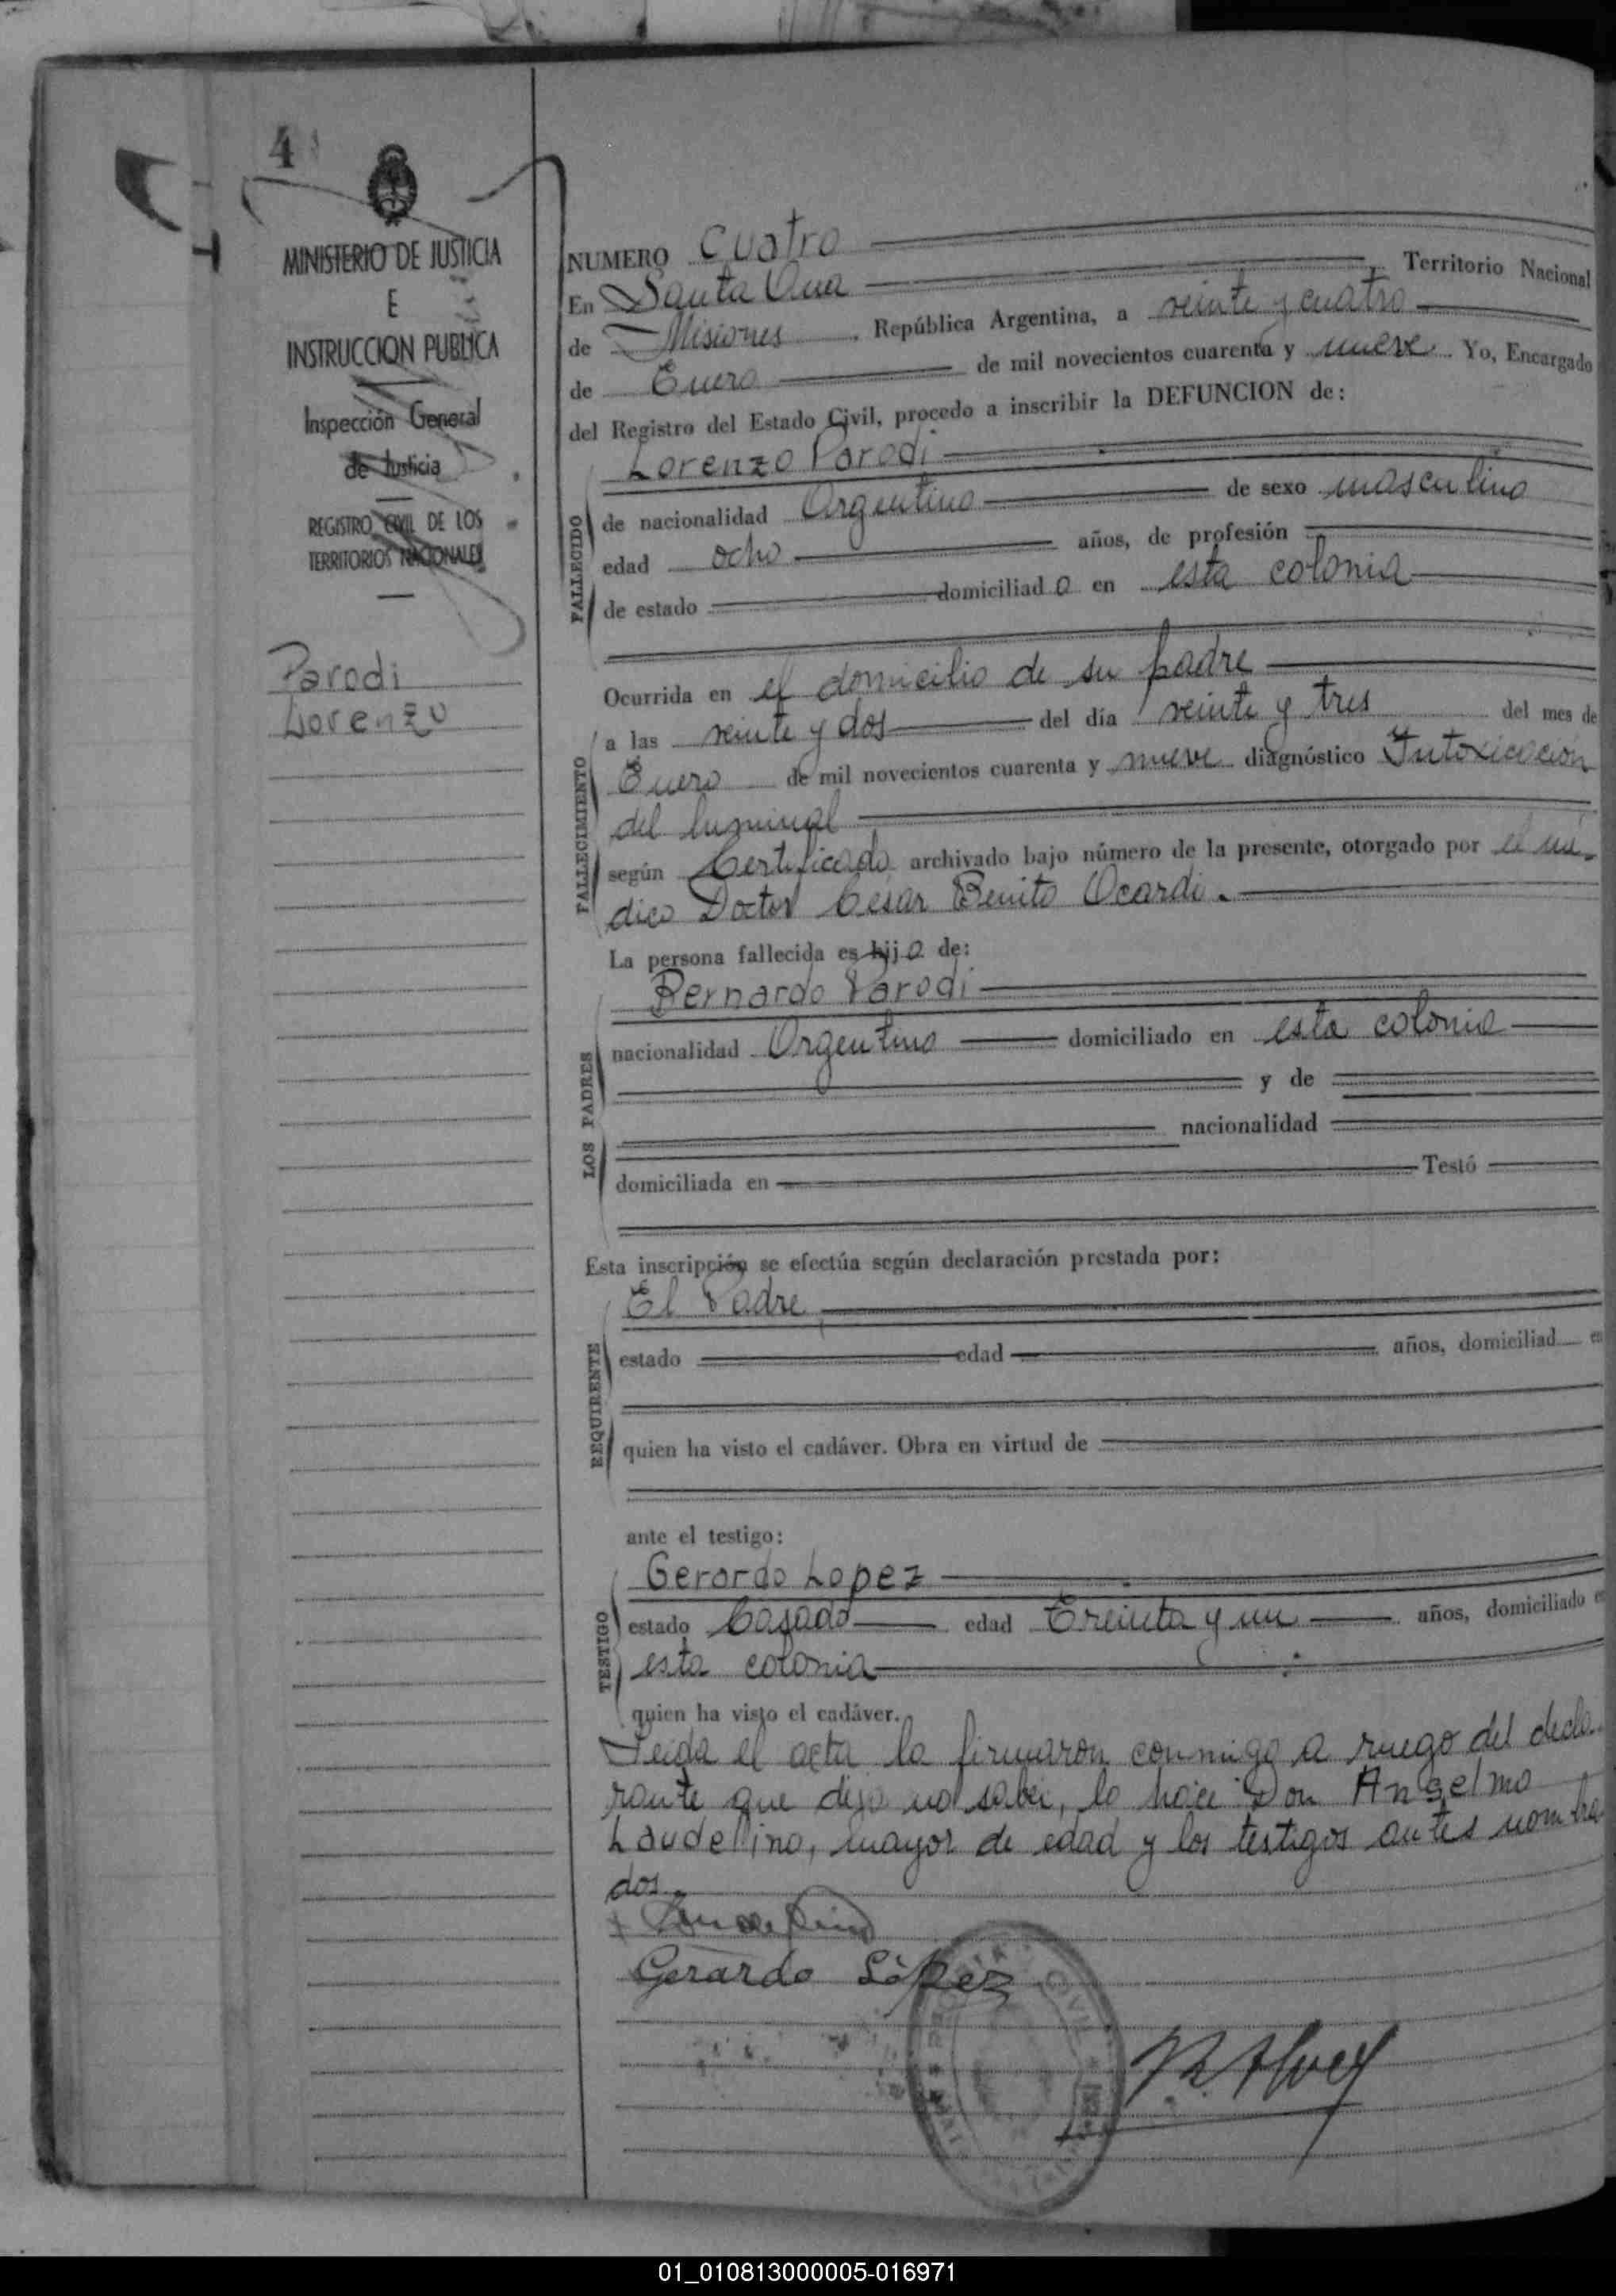 4
MINISTERIO DE JUSTICIA
E
INSTRUCCION PUBLICA
Inspección General
de Justicia
REGISTRO CIVIL DE LOS
TERRITORIOS NACIONALES
Parodi
Lorenzo
NUMERO Cuatro
En Santa Ana Territorio Nacional
de Misiones, República Argentina, a veinte y cuatro
de Enero de mil novecientos cuarenta y nueve Yo, Encargado
del Registro del Estado Civil, procedo a inscribir la DEFUNCION de:
FALLECIDO
Lorenzo Parodi
de nacionalidad Argentino de sexo masculino
edad ocho años, de profesión
de estado domiciliado en esta colonia
FALLECIMIENTO
Ocurrida en el domicilio de su padre
a las veinte y dos del día veinte y tres del mes de
Enero de mil novecientos cuarenta y nueve diagnóstico Intoxicación
del luminal
según Certificado archivado bajo número de la presente, otorgado por el mé-
dico Doctor Cesar Benito Ocardi.
La persona fallecida es hijo de:
LOS PADRES
Bernardo Parodi
nacionalidad Argentino domiciliado en esta colonia
y de
nacionalidad
domiciliada en Testó
Esta inscripción se efectúa según declaración prestada por:
REQUIRENTE
El Padre
estado edad años, domiciliad en
quien ha visto el cadáver. Obra en virtud de
ante el testigo:
TESTIGO
Gerardo Lopez
estado Casado edad Treinta y un años, domiciliado e
esta colonia
quien ha visto el cadáver.
Leida el acta la firmaron conmigo a ruego del decla-
rante que dijo no saber, lo hace Don Anselmo
Laudelino, mayor de edad y los testigos antes nombra
dos
Gerardo López
01_010813000005-016971